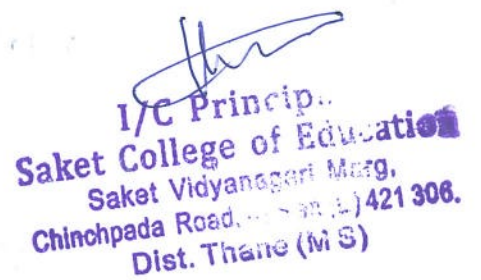 I/C Princip..
Saket College of Education
Saket Vidyanagari Marg,
Chinchpada Road, (E) 421 306.
Dist. Thane (M S)